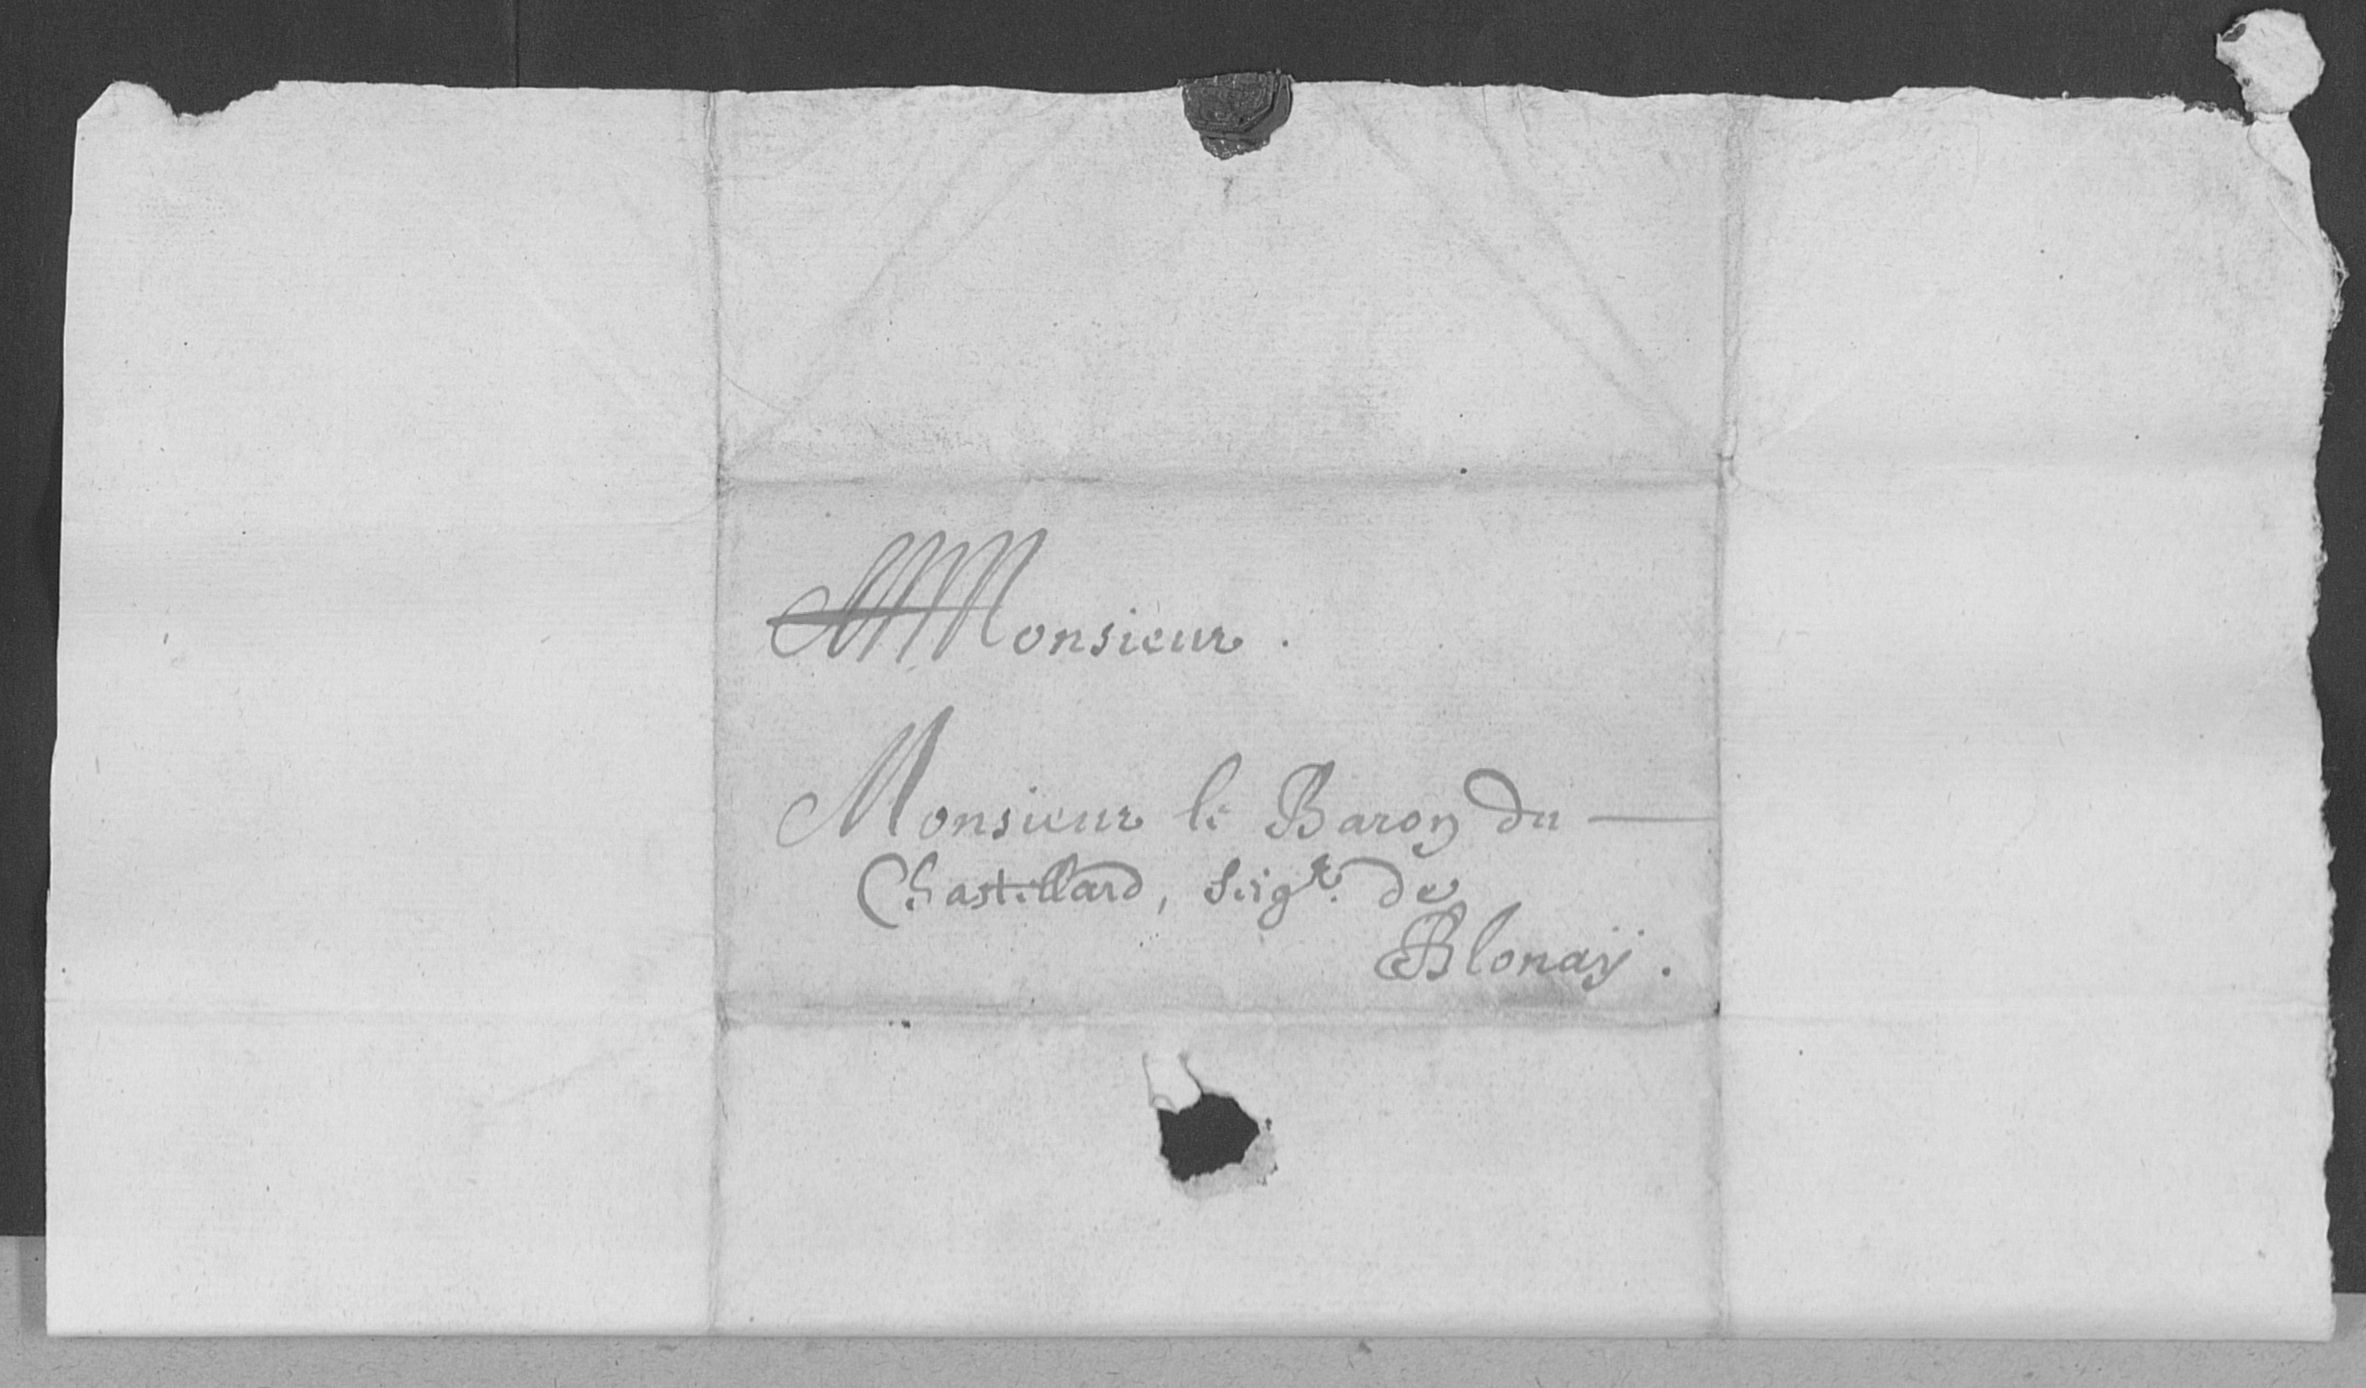 A Monsieur.
Monsieur le Baron du —
Chastellard, Seigr. de
Blonaÿ.